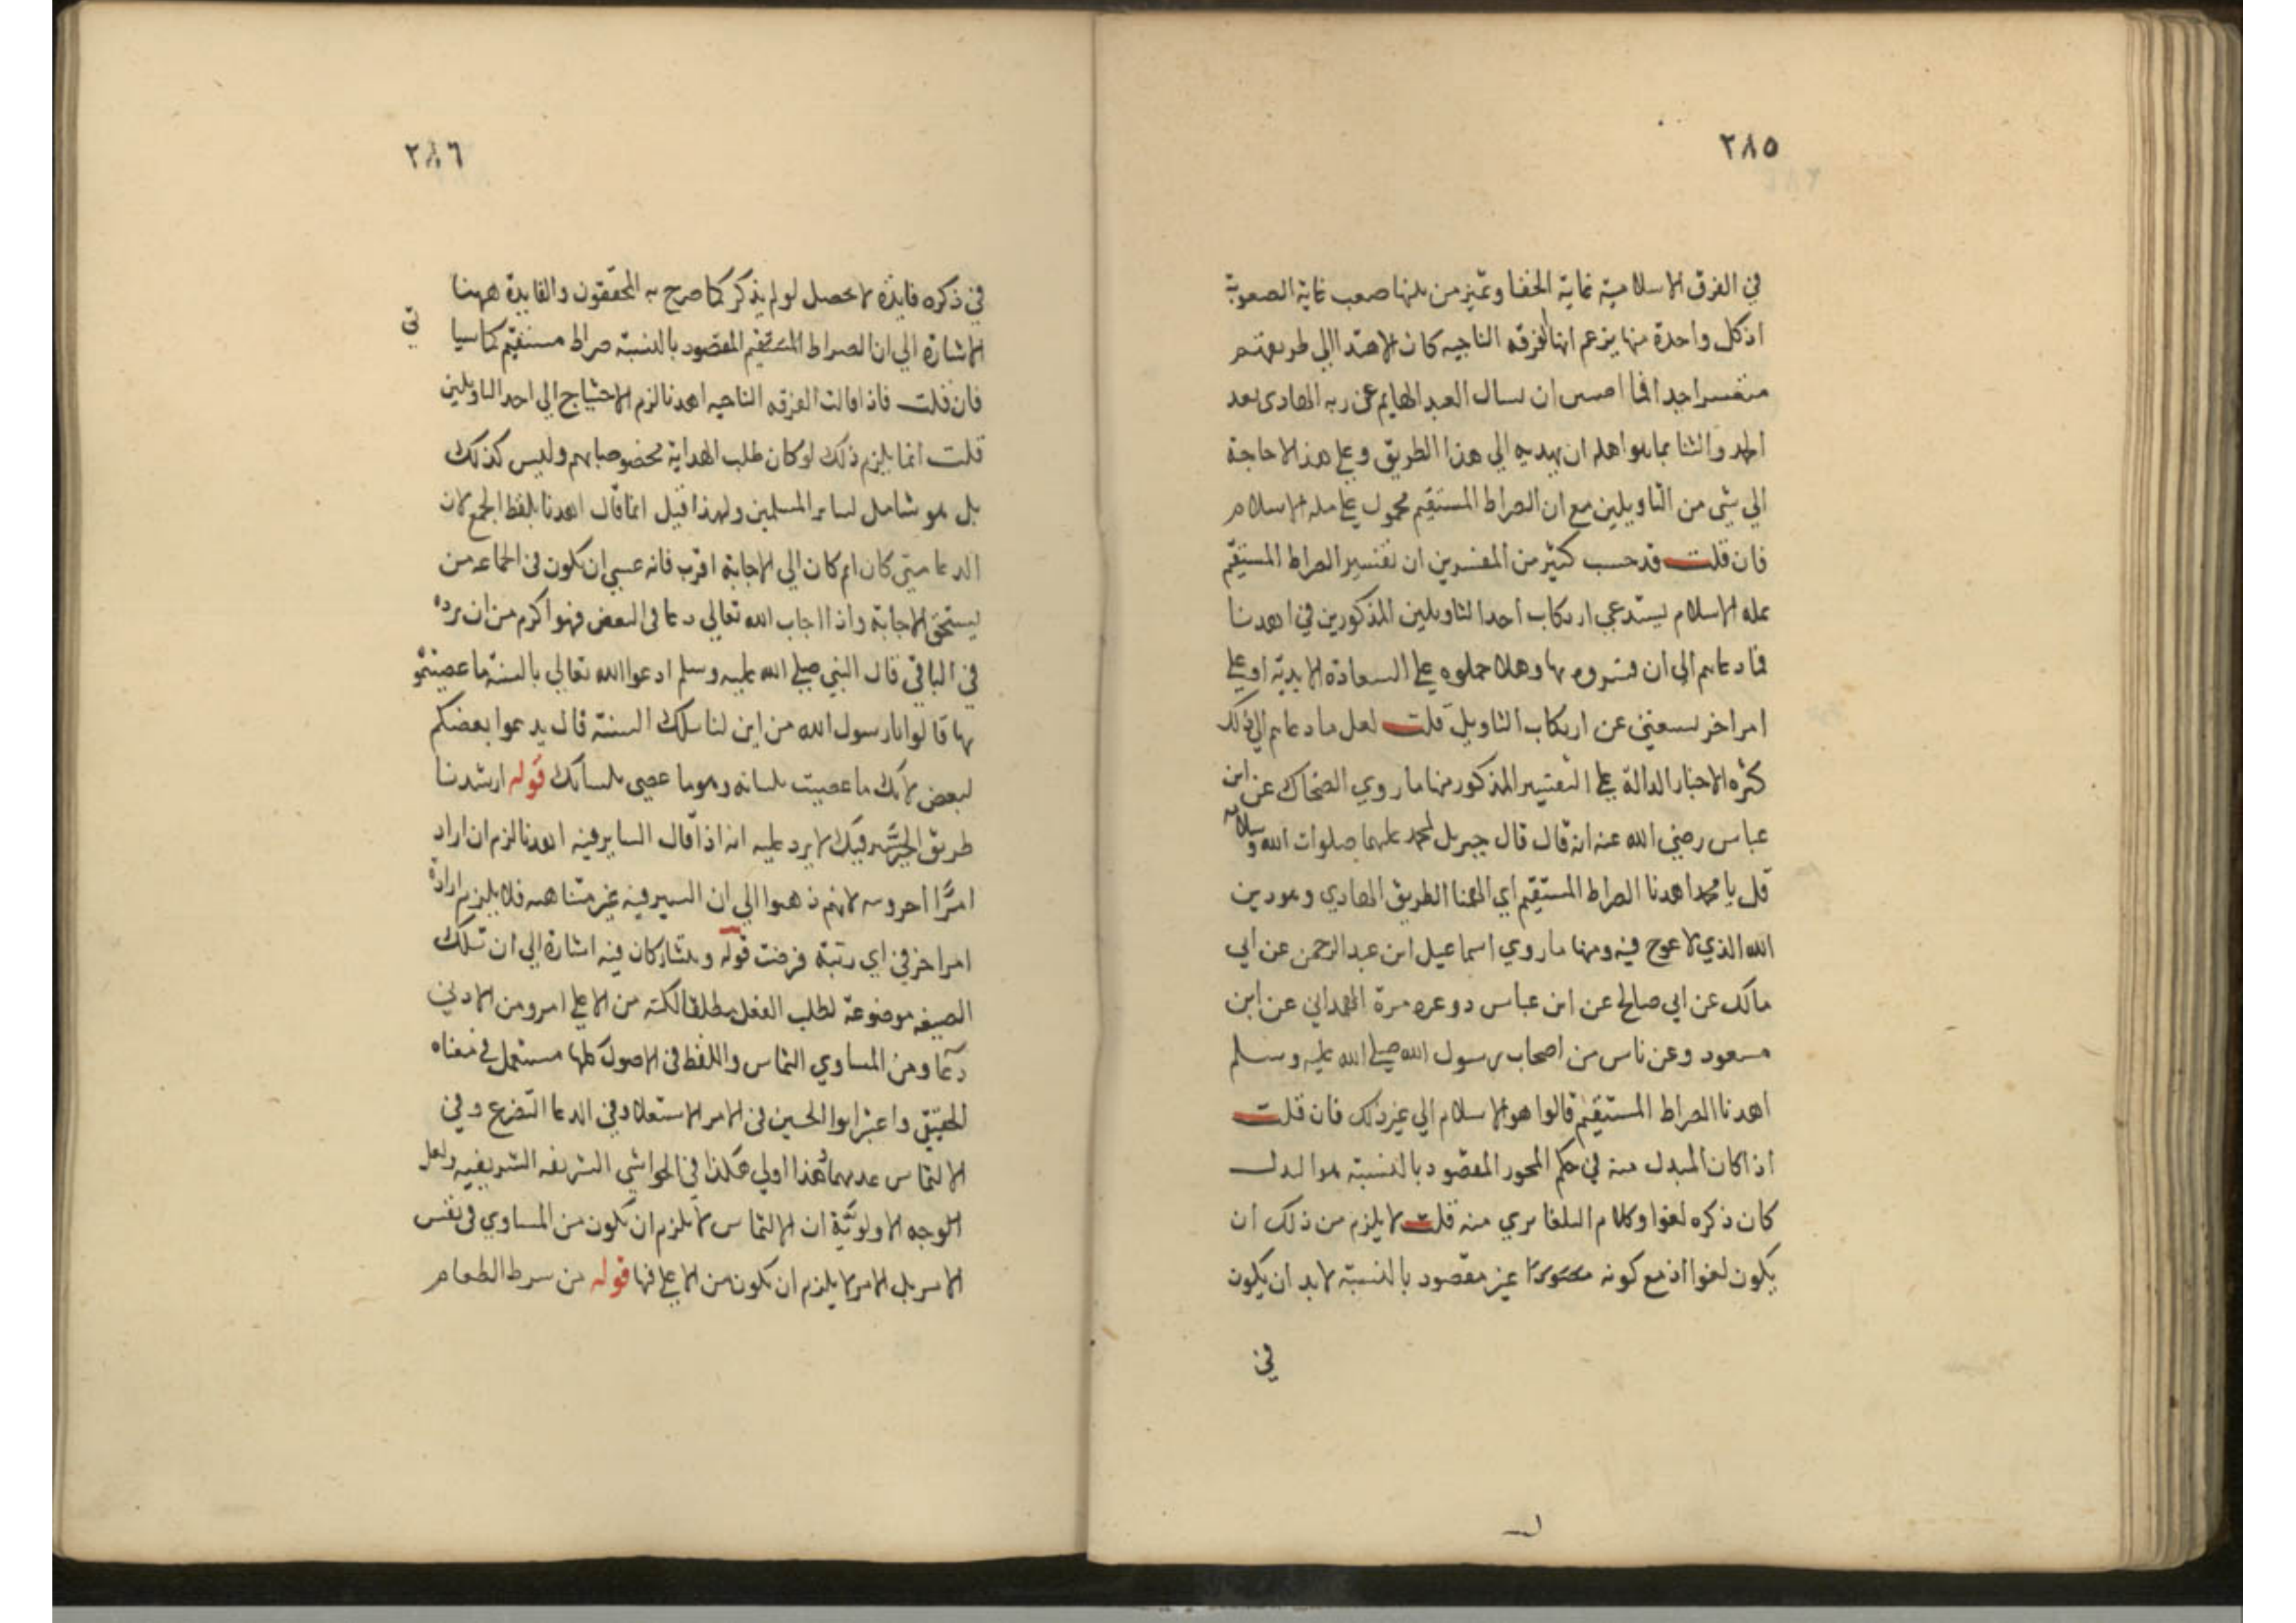 ٢٨٥
في الفرق الاسلامية غاية الخفا وتميز من بينها صعب غاية الصعوبة
اذ كل واحدة منها يزعم انها الفرقه الناجيه كان الاهتدا الي طريقتهم
متعسرا جدا فما احسن ان يسال العبد الهايم عن ربه الهادى بعد
الحمد والثنا بما هو اهله ان يهديه الي هذا الطريق وعلي هذا لا حاجة
الي شي من التاويلين مع ان الصراط المستقيم محمول علي مله الاسلام
فان قلت قد حسب كثير من المفسرين ان تفسير الصراط المستقيم
بمله الاسلام يستدعي ارتكاب احد التاويلين المذكورين في اهدنا
فما دعاهم الي ان فسروه بها وهلا حملوه علي السعادة الابدية او علي
امر اخر يستغني عن ارتكاب التاويل قلت لعل ما دعاهم الي ذلك
كثره الاخبار الدالة علي التفسير المذكور منها ما روي الضحاك عن ابن
عباس رضي الله عنه انه قال قال جبريل لمحمد عليهما صلوات الله وسلامه
قل يا محمد اهدنا الصراط المستقيم اي الهمنا الطريق الهادي وهو دين
الله الذي لا عوج فيه ومنها ما روي اسماعيل ابن عبد الرحمن عن ابي
مالك عن ابي صالح عن ابن عباس دوعره مرة الهمداني عن ابن
مسعود وعن ناس من اصحاب رسول الله صلي الله عليه وسلم
اهدنا الصراط المستقيم قالوا هو الاسلام الي غير ذلك فان قلت
اذا كان المبدل منه في حكم المحور المقصود بالنسبة هو البدل
كان ذكره لغوا وكلام البلغا بري منه قلت لا يلزم من ذلك ان
يكون لغوا اذ مع كونه غير مقصود بالنسبة لا بد ان يكون
في
٢٨٦
في ذكره فايدة لا تحصل لو لم يذكر كما صرح به المحققون والفايدة ههنا
الاشارة الي ان الصراط المستقيم المقصود بالنسبة صراط مستقيم كما سيا
تي
فان قلت فاذا قالت الفرقه الناجيه اهدنا لزم الاحتياج الي احد التاويلين
قلت انما يلزم ذلك لو كان طلب الهداية مخصوصا بهم وليس كذلك
بل هو شامل لساير المسلمين ولهذا قيل انما قال اهدنا بلفظ الجمع لان
الدعا متي كان اعم كان الي الاجابة اقرب فانه عسي ان يكون فى الجماعه من
يستحق الاجابة واذا اجاب الله تعالي دعا فى البعض فهو اكرم من ان يرده
في الباقي قال النبي صلي الله عليه وسلم ادعوا الله تعالي بالسنة ما عصيتمو
بها قالوا يا رسول الله من اين لنا تلك السنة قال يدعوا بعضكم
لبعض لانك ما عصيت بلسانه وهو ما عصى بلسانك قوله ارشدنا
طريق السير فيك لا يرد عليه انه اذا قال الساير فيه اهدنا لزم ان اراد
امرًا اخر وسه لانهم ذهبوا الي ان السير فيه غير متناهيه فلا يلزم ارادة
امر اخر في اي رتبة فرضت قوله ويتشاركان فيه اشارة الي ان تلك
الصيغه موضوعة لطلب الفعل مطلقا لكنه من الاعلي امر ومن الادني
دعا ومن المساوي التماس واللفظ فى الاصول كلها مستعمل في معناه
الحقيقي واعتبر ابو الحسين فى الامر الاستعلا وفي الدعا التضرع وفي
الالتماس عدمهما وهذا اولي هكذا في الحواشي الشريفه الشريفيه ولعل
الوجه الاولويَّة ان الالتماس لا يلزم ان يكون من المساوي فى نفس
الامر بل الامر لا يلزم ان يكون من الاعلي فيها قوله من سرط الطعام